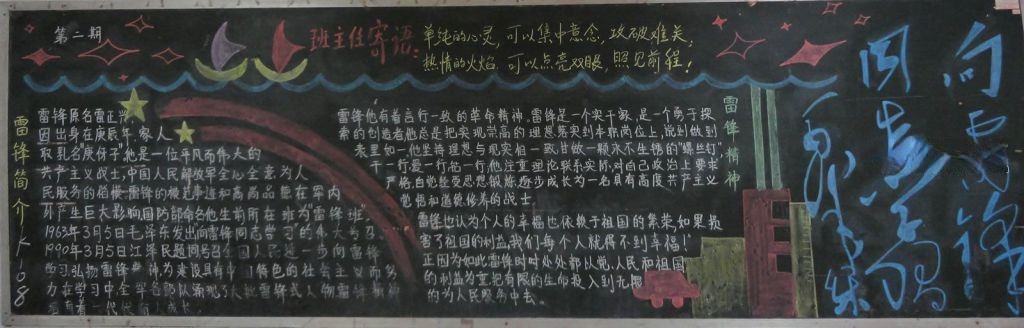 第二期
班主任寄语：
单纯的心灵，可以集中意念，攻破难关；
热情的火焰，可以点亮双眼，照见前程！
向雷锋
同志学习
雷锋简介K108
雷锋原名雷正兴
因出身在庚辰年 家人
取乳名"庚伢子"他是一位平凡而伟大的
共产主义战士，中国人民解放军全心全意为人
民服务的楷模，雷锋的模范事迹和高尚品德在军内
外产生巨大影响国防部命名他生前所在班为"雷锋班"
1963年3月5日毛泽东发出向雷锋同志学习的伟大号召
1990年3月5日江泽民题词号召全国人民进一步向雷锋
学习弘扬雷锋精神为建设具有中国特色的社会主义而努
力
雷锋精神
雷锋他有着言行一致的革命精神，雷锋是一个实干家，是一个勇于探
索的创造者他总是把实现崇高的理想落实到本职岗位上，说到做到
表里如一他坚持理想与现实相一致，甘做一颗永不生锈的"螺丝钉"
干一行爱一行钻一行，他注重理论联系实际，对自己政治上要求
严格，自觉经受思想锻炼逐步成长为一名具有高度共产主义
觉悟和道德修养的战士。
雷锋也认为个人的幸福也依赖于祖国的繁荣，如果损
害了祖国的利益我们每个人就得不到幸福！
正因为如此雷锋时时处处都以党、人民和祖国
的利益为重把有限的生命投入到无限
的为人民服务中去。